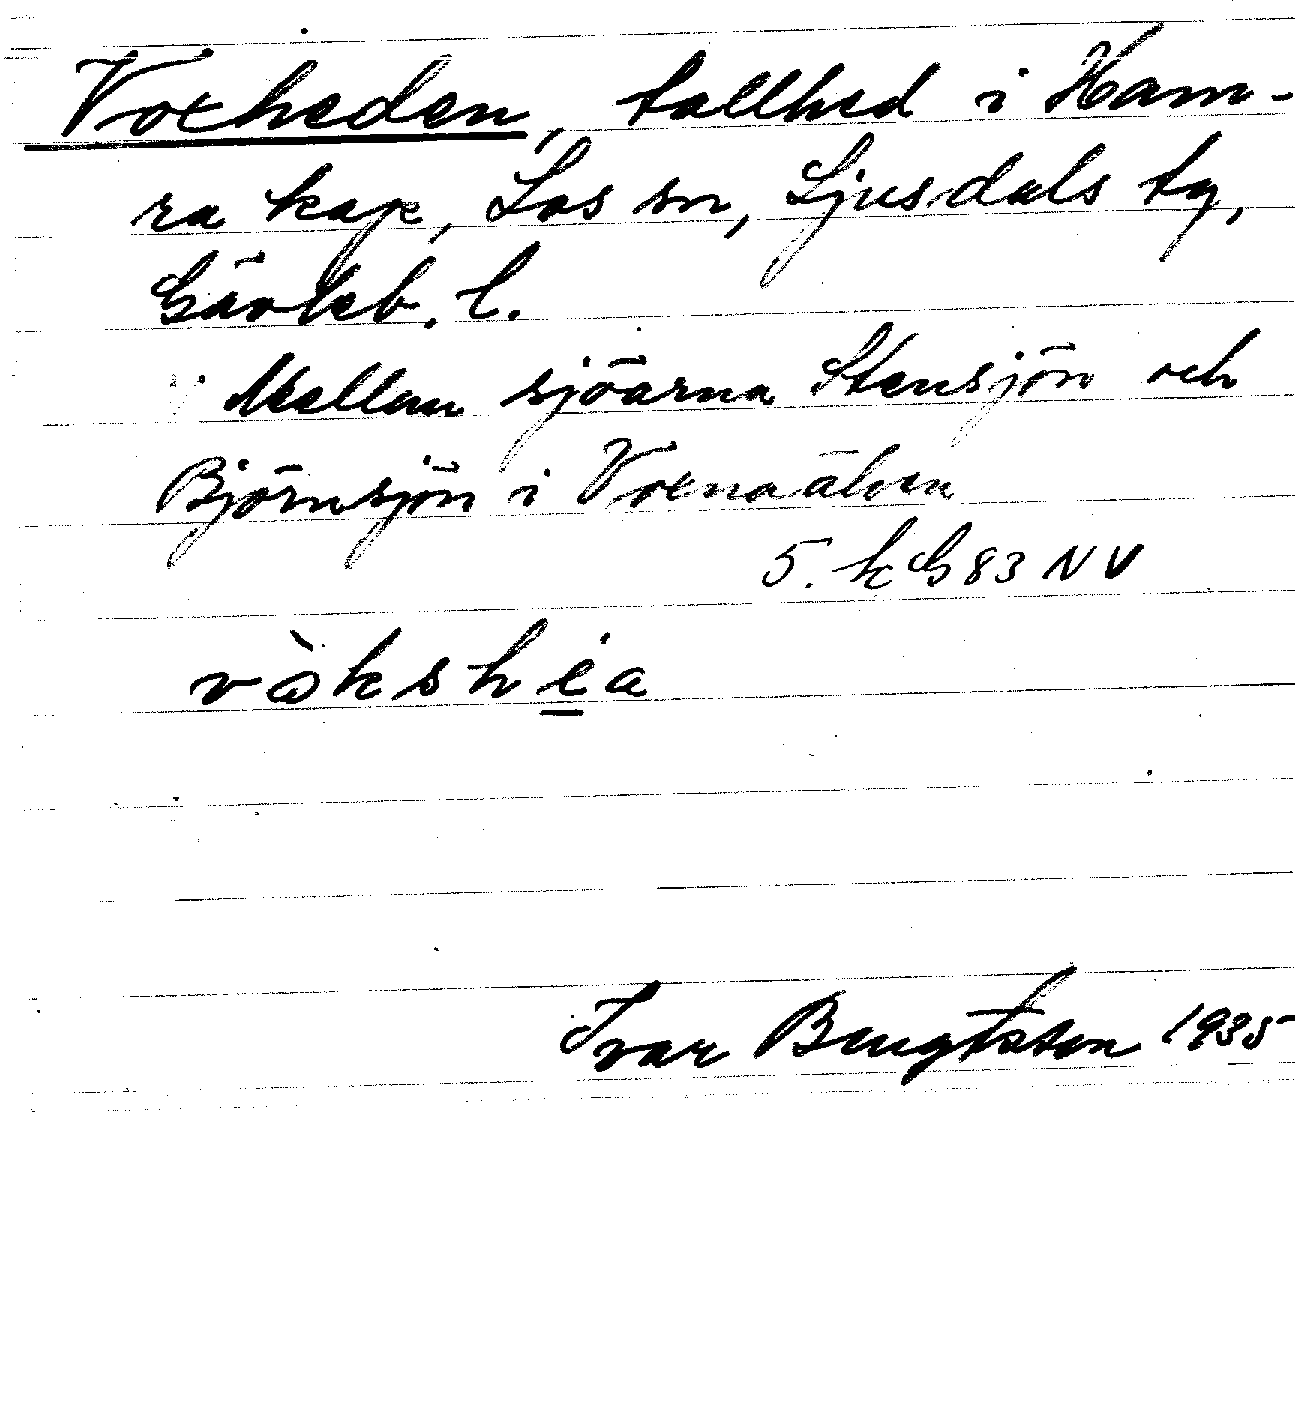 Voxheden, tallhed i Ham-
ra kap, Los sn, Ljusdals tg,
Gävleb. l.
Mellan sjöarna Stensjön och
Björnsjön i Voxnaälven
5. k G 83 NV
Ivar Bengtsson 1935